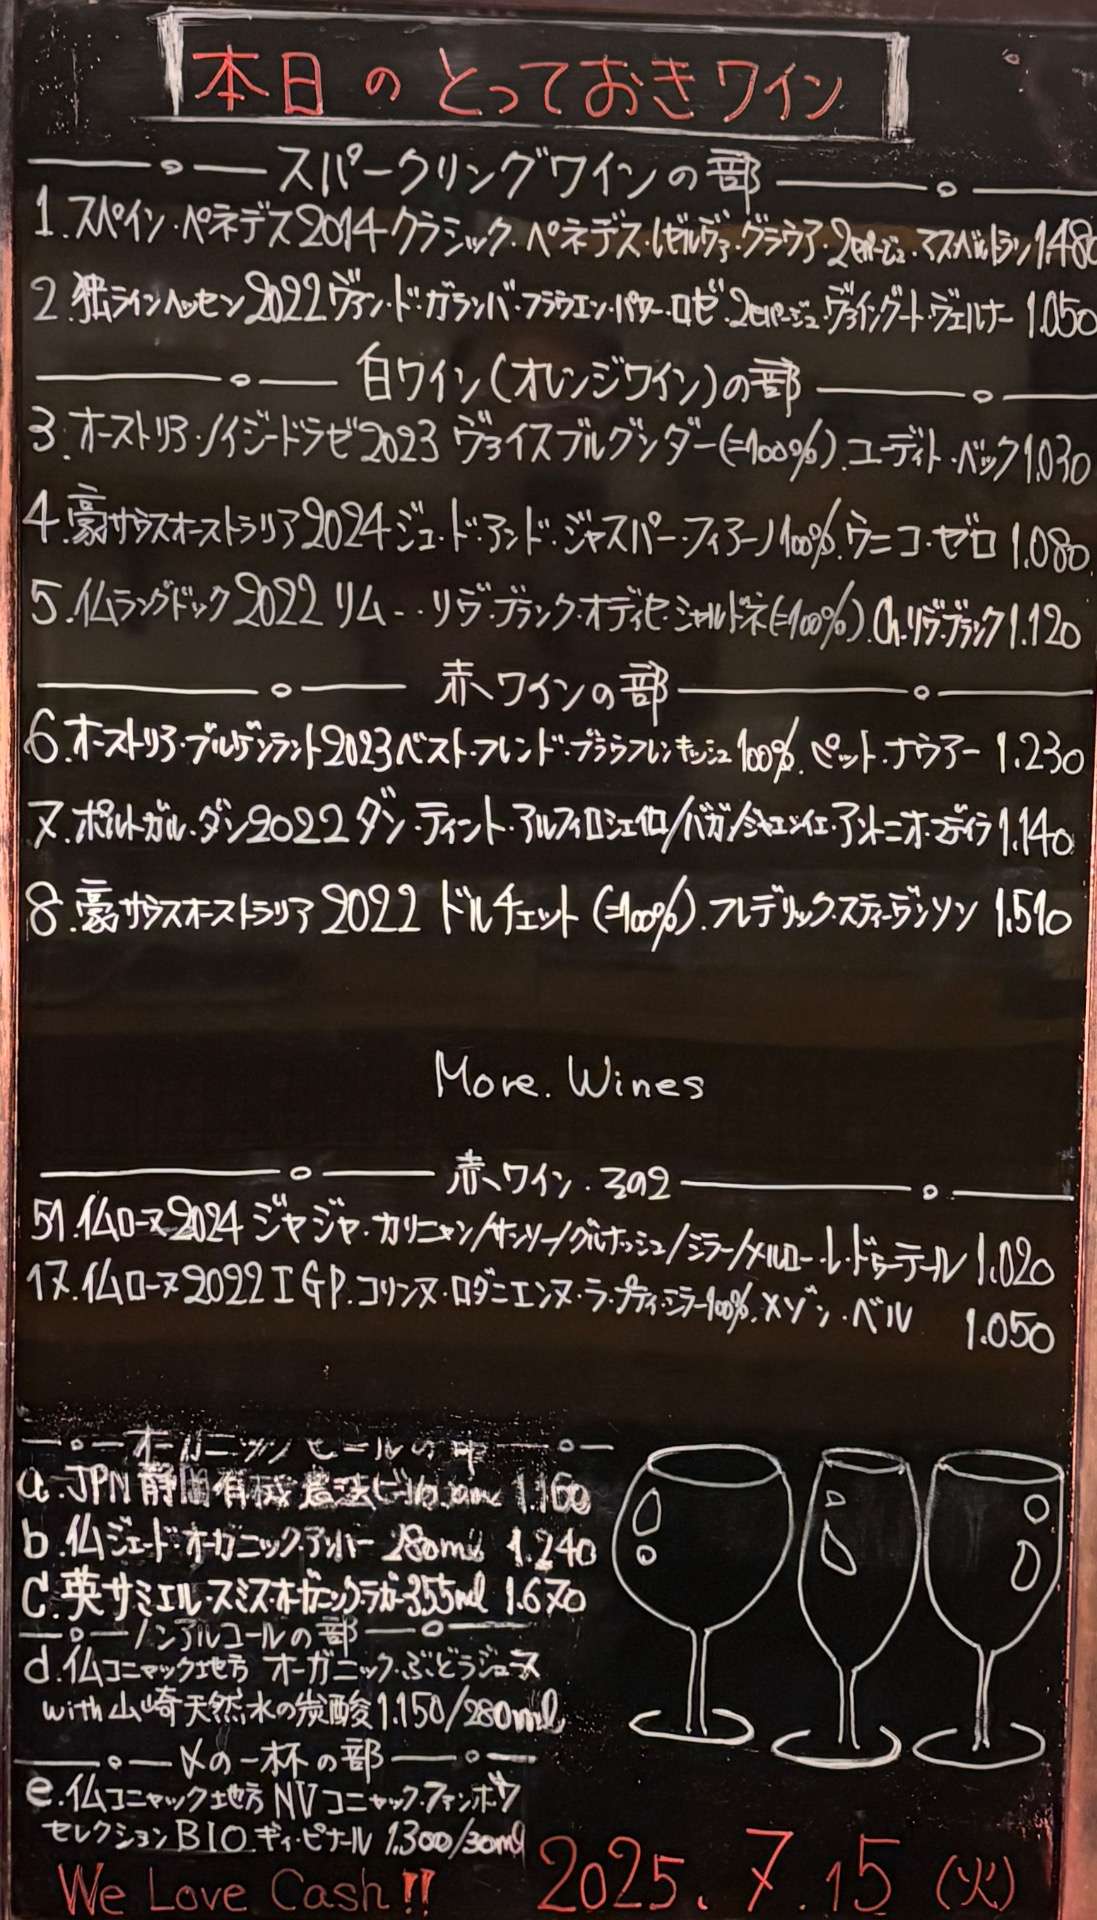 本日のとっておきワイン
スパークリングワインの部
1.スペイン・ペネデス2014クラシック・ペネデス・レゼルヴァ・グラウア・2セパージュ・マスベルトラン1.480
2.独ラインヘッセン2022ヴァン・ド・ガランバ・フラウエン・パワー・ロゼ・2セパージュ・ヴァイングート・ヴェルナー 1.050
白ワイン(オレンジワイン)の部
3.オーストリア・ノイジードラゼ2023 ヴァイスブルグンダー(=100%).ユーディト・ベック1.030
4.豪サウスオーストラリア2024ジュ・ド・アンド・ジャスパー・フィアーノ100%.ウニコ・ゼロ 1.080
5.仏ラングドック2022 リム--・リヴ・ブランク・オディセ・シャルドネ(=100%).Ch.リヴ・ブランク1.120
赤ワインの部
6.オーストリア・ブルゲンラント2023ベスト・フレンド・ブラウフレンキッシュ100%.ピット・ナウアー 1.230
7.ポルトガル・ダン2022 ダン・ティント・アルフィロシェイロ/バガ/ジャエン/イエ・アントニオ・マディラ1.140
8.豪サウスオーストラリア 2022 ドルチェット(=100%).フレデリック・スティーヴンソン 1.510
More. Wines
赤ワイン.392
51.仏ローヌ2024 ジャジャ・カリニャン/サンソー/グルナッシュ/シラー/メルロー・レ・ドゥーテール 1.020
17.仏ローヌ2022 IGP.コリンヌ・ロダニエンヌ・ラ・プティ・シラー100%.メゾン・ベル 1.050
オーガニックビールの部
a.JPN静岡有機農法ビール 1.160
b.仏ジェード・オーガニック・アンバー 280ml 1.240
c.英サミエル・スミスオーガニック・ラガー355ml 1.670
ノンアルコールの部
d.仏コニャック地方 オーガニック・ぶどうジュース
with山崎天然水の炭酸1.150/280ml
〆の一杯の部
e.仏コニャック地方 NVコニャック・ファンボワ
セレクションBIO ギィ・ピナール 1.300/30ml
We Love Cash!! 2025.7.15(火)